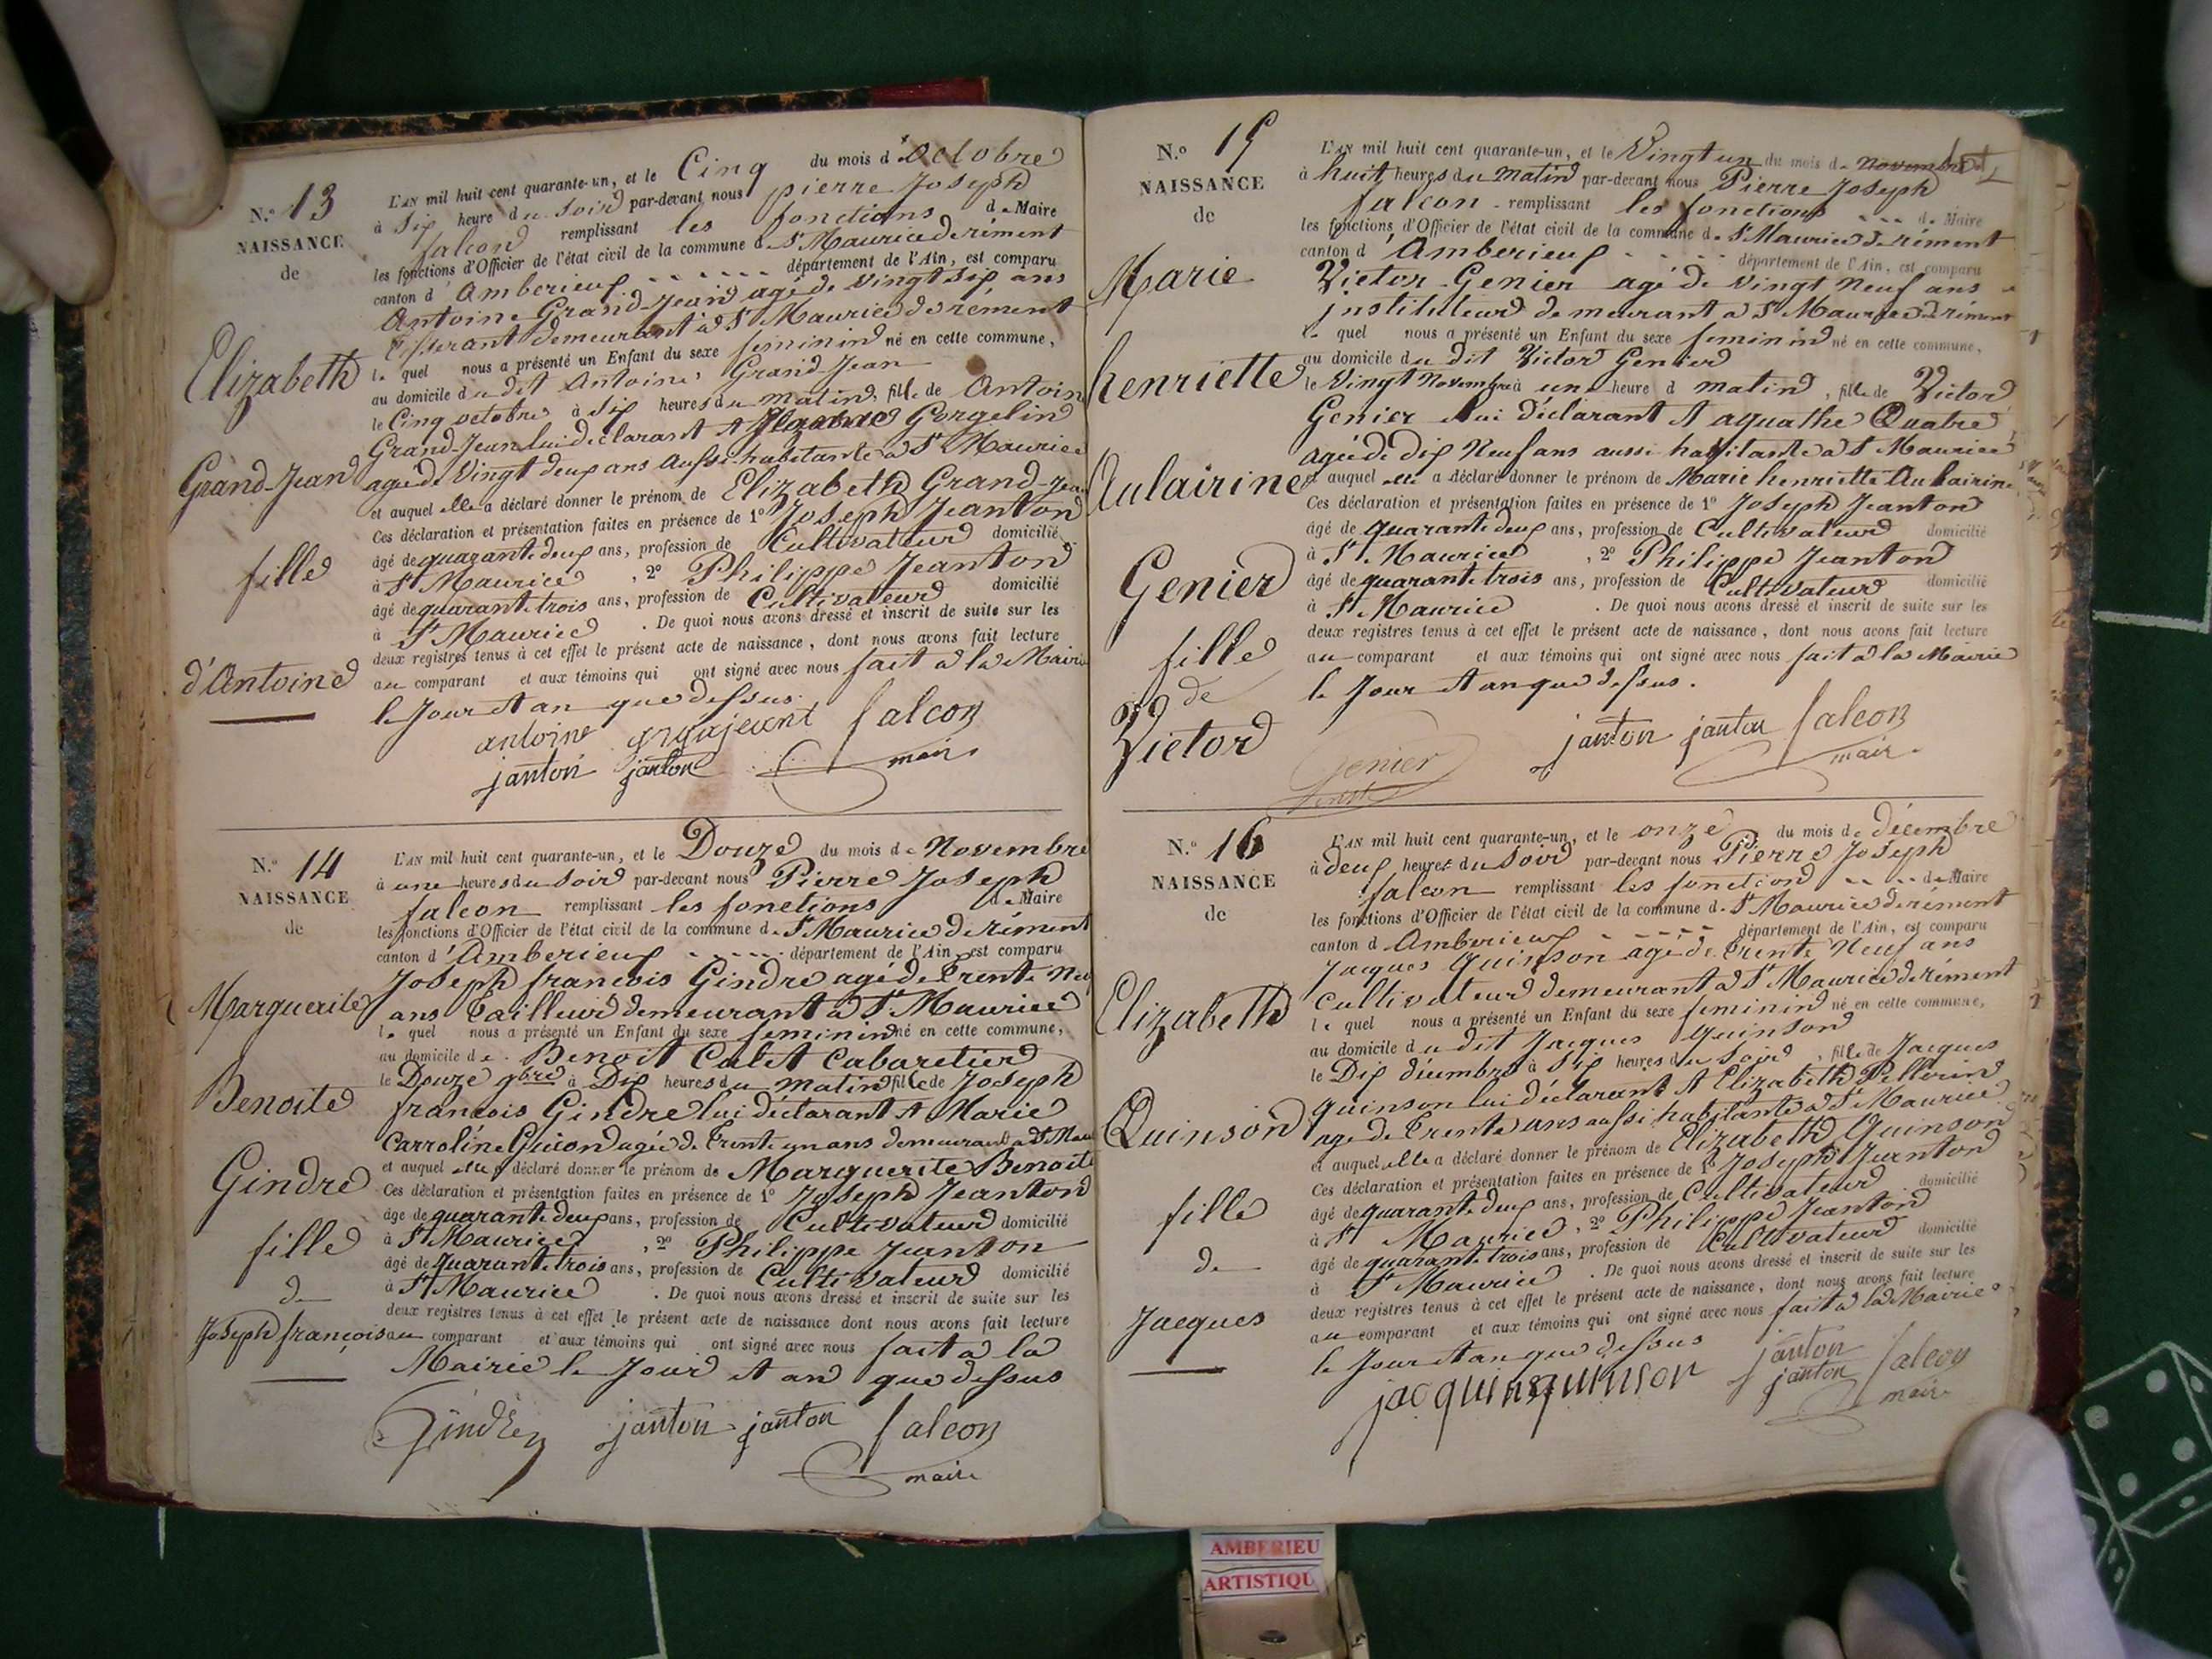 N.º 13
NAISSANCE
de
Elizabeth
Grand-Jean
fille
d'Antoine
L'AN mil huit cent quarante-un, et le Cinq du mois d'Octobre
à Six heure du Soir par-devant nous pierre Joseph
falcon remplissant les fonctions de Maire
les fonctions d'Officier de l'état civil de la commune de St Maurice de rément
canton d'Amberieux département de l'Ain, est comparu
Antoine Grand-Jean agé de Vingt Six ans
tisserant demeurant à St Maurice de rément
le quel nous a présenté un Enfant du sexe feminin né en cette commune,
au domicile du dit Antoine Grand Jean
le Cinq octobre à Six heures du matin, fille de Antoine
Grand-Jean lui déclarant et Gorgelin
agée de Vingt deux ans Aussi habitante à St Maurice
et auquel elle a déclaré donner le prénom de Elizabeth Grand-Jean
Ces déclaration et présentation faites en présence de 1º Joseph Jeanton
âgé de quarante deux ans, profession de Cultivateur domicilié
à St Maurice , 2º Philippe Jeanton
âgé de quarante trois ans, profession de Cultivateur domicilié
à St Maurice . De quoi nous avons dressé et inscrit de suite sur les
deux registres tenus à cet effet le présent acte de naissance, dont nous avons fait lecture
au comparant et aux témoins qui ont signé avec nous fait à la Mairie
le Jour et an que dessus.
antoine falcon
janton janton maire
N.º 14
NAISSANCE
de
Marguerite
Benoite
Gindre
fille
de
Joseph françois
L'AN mil huit cent quarante-un, et le Douze du mois de Novembre
à une heures du Soir par-devant nous Pierre Joseph
falcon remplissant les fonctions de Maire
les fonctions d'Officier de l'état civil de la commune de St Maurice de rément
canton d'Amberieux département de l'Ain, est comparu
Joseph francois Gindre agé de trente neuf
ans tailleur demeurant à St Maurice
le quel nous a présenté un Enfant du sexe feminin né en cette commune,
au domicile de Benoit Calet Cabaretier
le Douze 9bre à Dix heures du matin fille de Joseph
francois Gindre lui déclarant et Marie
Carroline Guiond agée de trente un ans demeurant à St Mau
et auquel elle a déclaré donner le prénom de Marguerite Benoite
Ces déclaration et présentation faites en présence de 1º Joseph Jeanton
âgé de quarante deux ans, profession de Cultivateur domicilié
à St Maurice , 2º Philippe Jeanton
âgé de quarante trois ans, profession de Cultivateur domicilié
à St Maurice . De quoi nous avons dressé et inscrit de suite sur les
deux registres tenus à cet effet le présent acte de naissance dont nous avons fait lecture
au comparant et aux témoins qui ont signé avec nous fait à la
Mairie le Jour et an que dessus
Gindre janton janton falcon
maire
N.º 15
NAISSANCE
de
Marie
henriette
Aulairine
Genier
fille
de
Victor
L'AN mil huit cent quarante-un, et le Vingt un du mois de novembre
à huit heures du matin par-devant nous Pierre Joseph
falcon remplissant les fonctions de Maire
les fonctions d'Officier de l'état civil de la commune de St Maurice de rément
canton d'Amberieux département de l'Ain, est comparu
Victor Genier agé de Vingt Neuf ans
instituteur demeurant à St Maurice de rément
le quel nous a présenté un Enfant du sexe feminin né en cette commune,
au domicile du dit Victor Genier
le Vingt Novembre à une heure d matin, fille de Victor
Genier lui déclarant et aquathe Quatre
agée de dix Neuf ans aussi habitante à St Maurice
et auquel elle a déclaré donner le prénom de Marie henriette Aulairine
Ces déclaration et présentation faites en présence de 1º Joseph Jeanton
âgé de quarante deux ans, profession de Cultivateur domicilié
à St Maurice , 2º Philippe Jeanton
âgé de quarante trois ans, profession de Cultivateur domicilié
à St Maurice . De quoi nous avons dressé et inscrit de suite sur les
deux registres tenus à cet effet le présent acte de naissance, dont nous avons fait lecture
au comparant et aux témoins qui ont signé avec nous fait à la Mairie
le Jour et an que dessus.
Genier janton janton falcon
maire
N.º 16
NAISSANCE
de
Elizabeth
Quinson
fille
de
Jacques
L'AN mil huit cent quarante-un, et le onze du mois de décembre
à deux heures du Soir par-devant nous Pierre Joseph
falcon remplissant les fonction de Maire
les fonctions d'Officier de l'état civil de la commune de St Maurice de rément
canton d Amberieux département de l'Ain, est comparu
Jacques Quinson agé de trente Neuf ans
Cultivateur demeurant à St Maurice de rément
le quel nous a présenté un Enfant du sexe feminin né en cette commune,
au domicile du dit Jacques Quinson
le Dix décembre à Six heures du Soir, fille de Jacques
quinson lui déclarant et Elizabeth Pellerin
age de trente ans aussi habitante à St Maurice
et auquel elle a déclaré donner le prénom de Elizabeth Quinson
Ces déclaration et présentation faites en présence de 1º Joseph Jeanton
âgé de quarante deux ans, profession de Cultivateur domicilié
à St Maurice , 2º Philippe Jeanton
âgé de quarante trois ans, profession de Cultivateur domicilié
à St Maurice . De quoi nous avons dressé et inscrit de suite sur les
deux registres tenus à cet effet le présent acte de naissance, dont nous avons fait lecture
au comparant et aux témoins qui ont signé avec nous fait à la Mairie
le Jour et an que dessus
janton
janton falcon
maire
AMBERIEU
ARTISTIQU